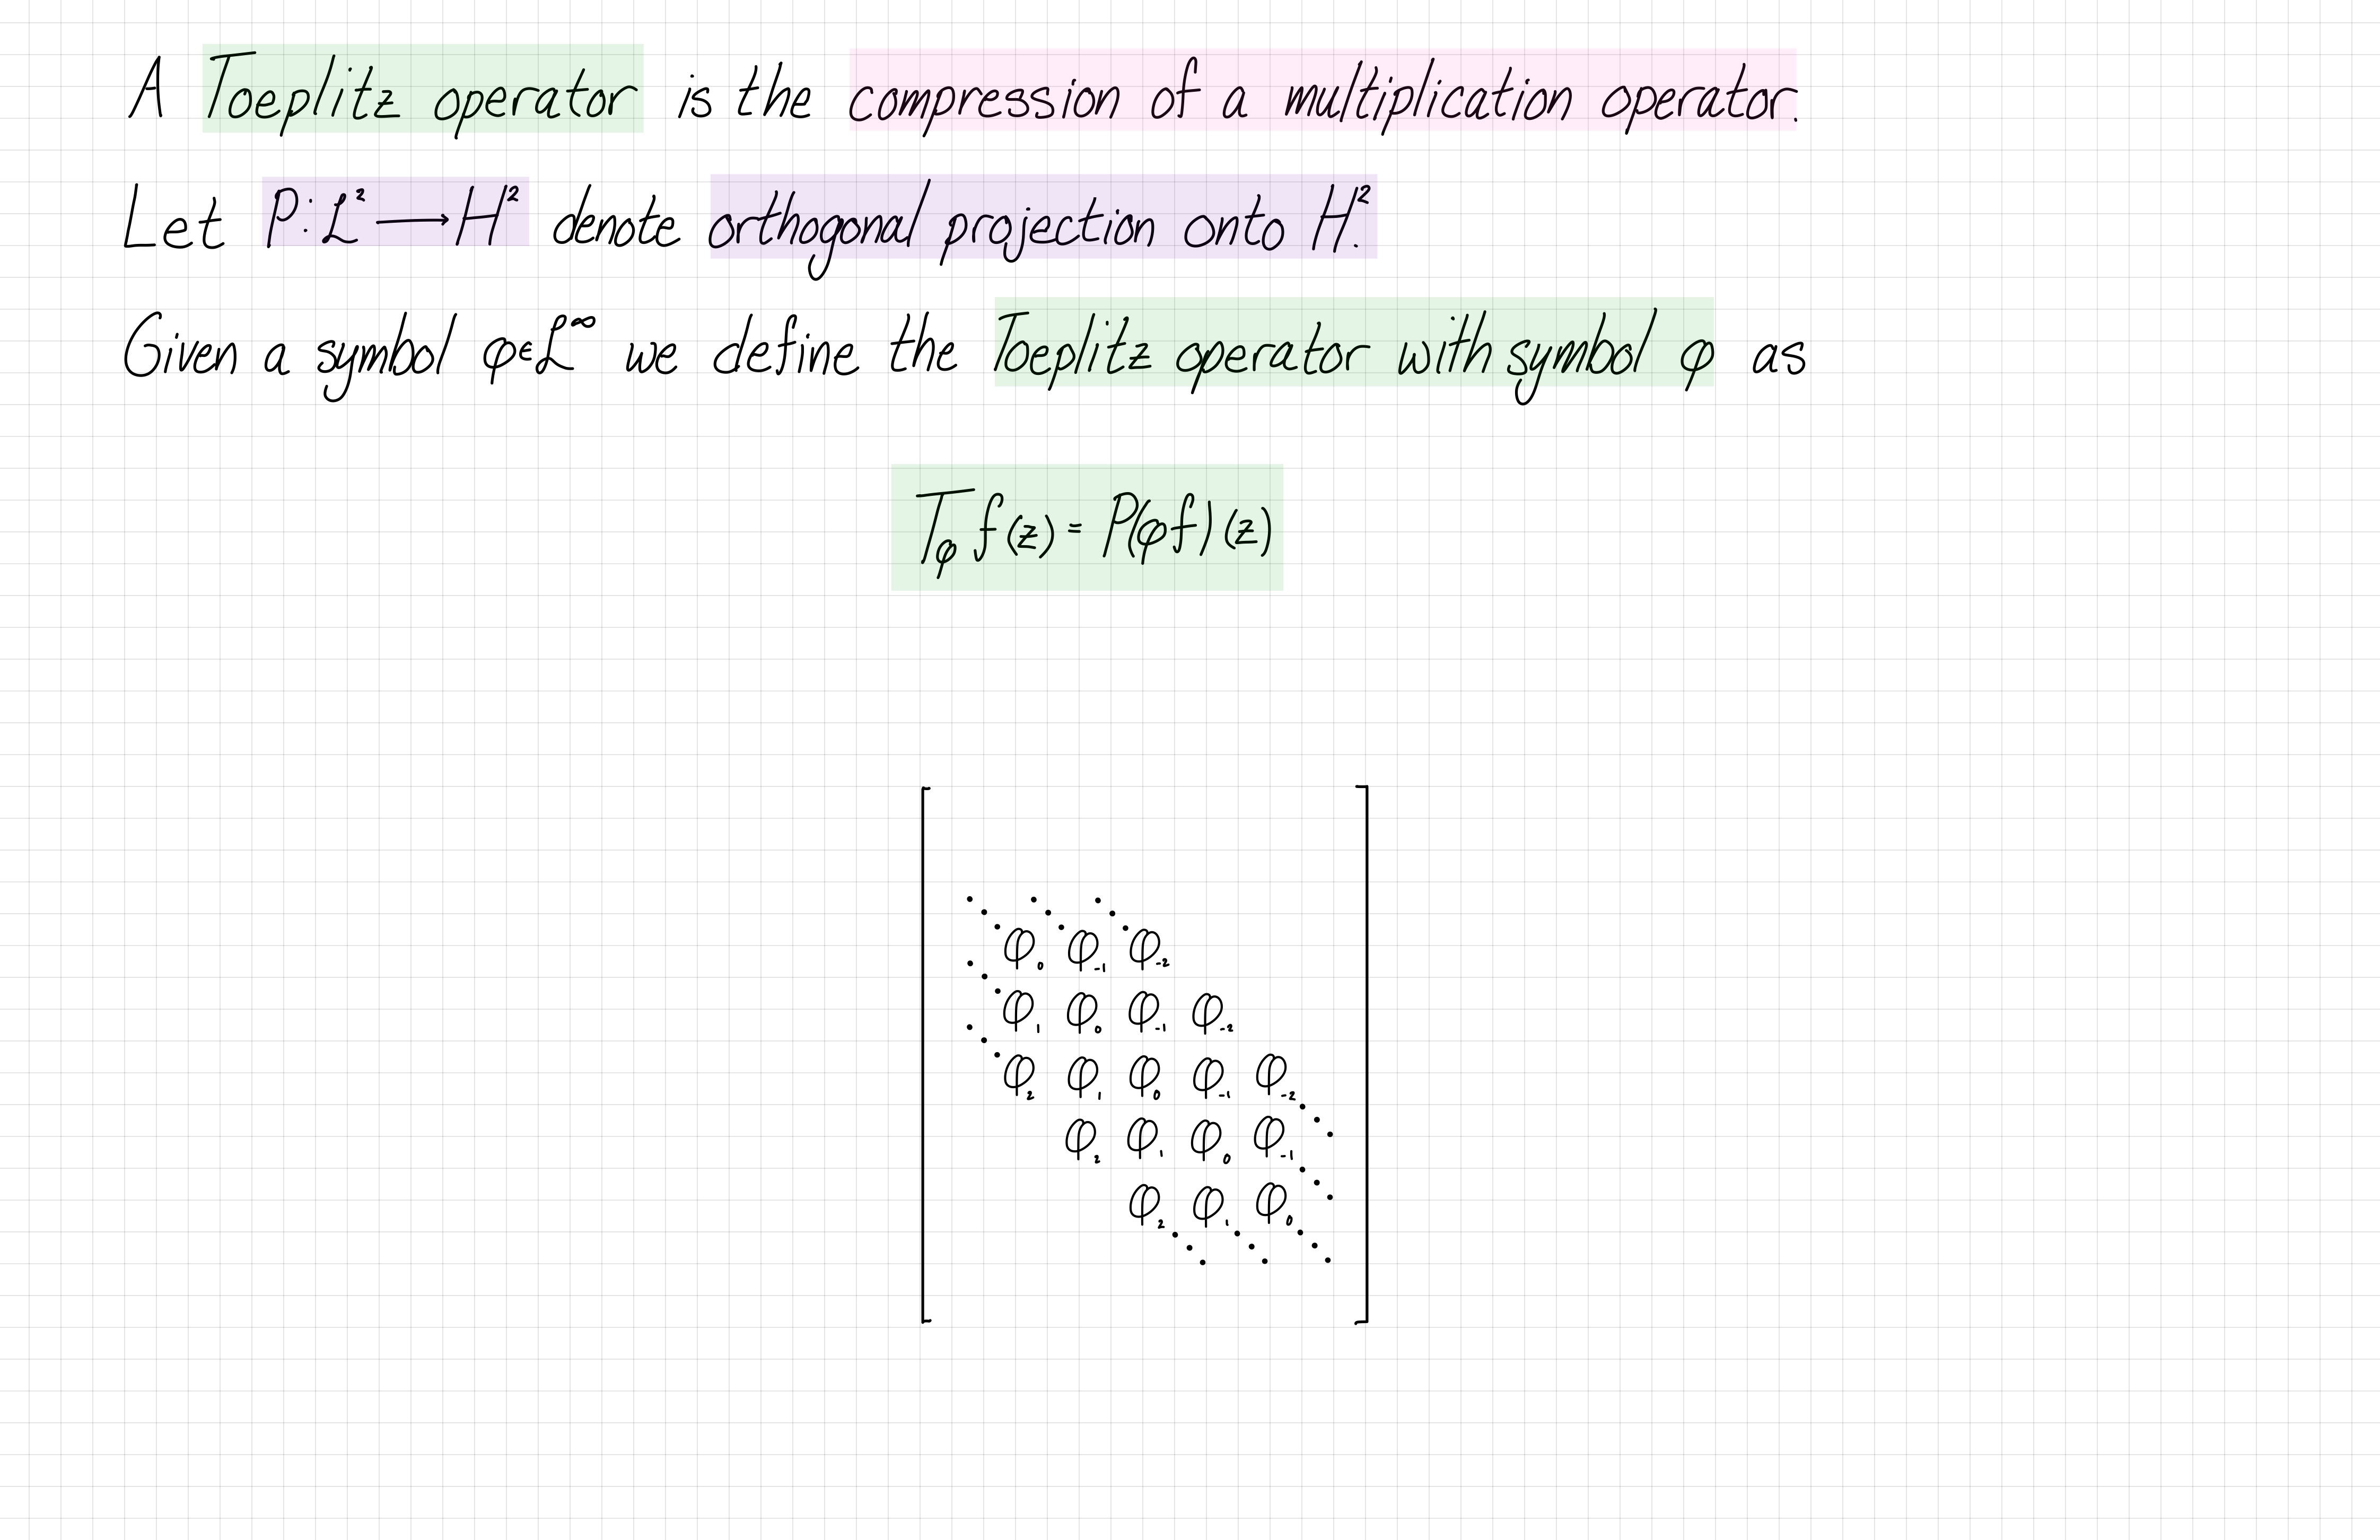 A Toeplitz operator is the compression of a multiplication operator.
Let P: L² ⟶ H² denote orthogonal projection onto H².
Given a symbol φ∈L^∞ we define the Toeplitz operator with symbol φ as
T_φ f(z) = P(φf)(z)
⋱ ⋱ ⋱
⋱ φ₀ φ₋₁ φ₋₂
⋱ φ₁ φ₀ φ₋₁ φ₋₂
φ₂ φ₁ φ₀ φ₋₁ φ₋₂ ⋱
φ₂ φ₁ φ₀ φ₋₁ ⋱
φ₂ φ₁ φ₀
⋱ ⋱ ⋱